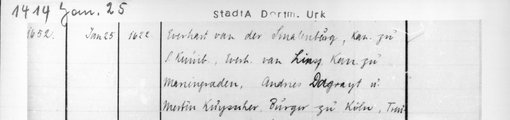 1414 Jan. 25
StadtA Dortm. Urk
1652. Jan 25 1622 Everhart van der Smalenburg, Kan. zu
S. Kunib., Everh. van Linsg Kan. zu
Mariengraden, Andries Dagrayt u.
Mertin Kuypscher, Bürger zu Köln,